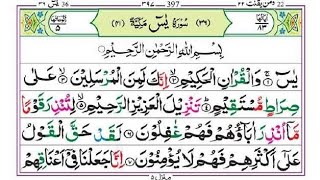 36 يٰسٓ ٣٦ 397 ٣٩٧ 22
سُوْرَةُ يٰسٓ مَكِّيَّةٌ
بِسْمِ اللّٰهِ الرَّحْمٰنِ الرَّحِيْمِ
يٰسٓ ۚ وَالْقُرْاٰنِ الْحَكِيْمِ ۙ اِنَّكَ لَمِنَ الْمُرْسَلِيْنَ ۙ عَلٰى
صِرَاطٍ مُّسْتَقِيْمٍ ؕ تَنْزِيْلَ الْعَزِيْزِ الرَّحِيْمِ ۙ لِتُنْذِرَ قَوْمًا
مَّاۤ اُنْذِرَ اٰبَآؤُهُمْ فَهُمْ غٰفِلُوْنَ لَقَدْ حَقَّ الْقَوْلُ
عَلٰۤى اَكْثَرِهِمْ فَهُمْ لَا يُؤْمِنُوْنَ اِنَّا جَعَلْنَا فِيْۤ اَعْنَاقِهِمْ